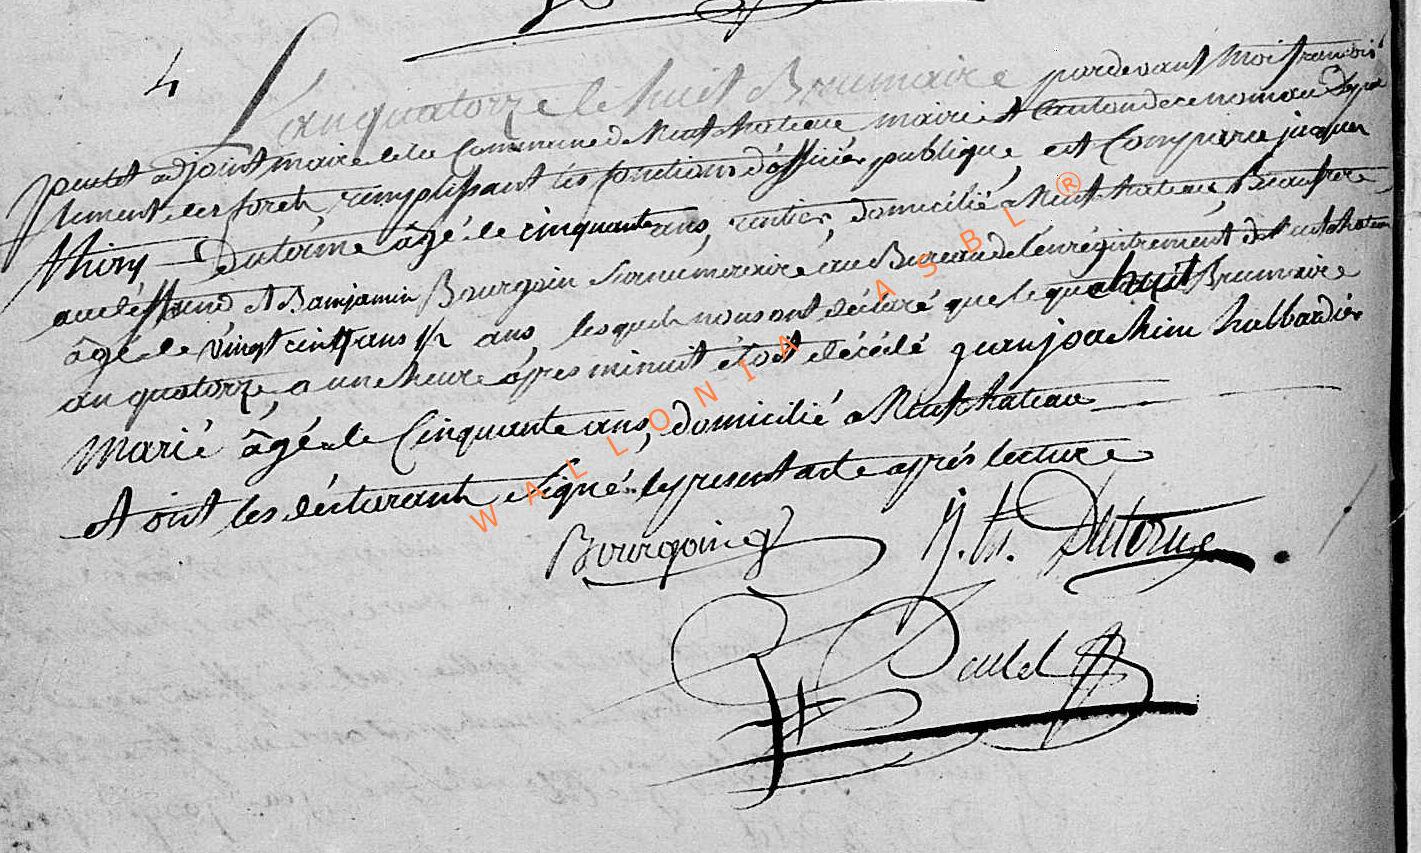 4
L'an quatorze le huit Brumaire pardevant moi francois
poulet adjoint maire de la Commune de Neufchateau mairie et Canton de ce nom au Depar
tement des forêts, remplissant les fonctions d'officier publique, est Comparu jacques
thiry Determe âgé de cinquante ans, rentier, domicilié a Neufchateau, Beaufrere
au deffund et Banjamin Bourgoin surnumeraire au Bureau de l'enrégistrement de Neufchateau
âgé de vingt cinq ans 1/2 ans lesquels nous ont déclaré que le huit Brumaire
an quatorze, a une heure apres minuit étoit décédé jean joachim hallbardier
marié âgé de Cinquante ans, domicilié a Neufchateau
et ont les déclarants signé le present acte après lecture
Bourgoing J. th. Determe
Poulet
WALLONIA ASBL ®